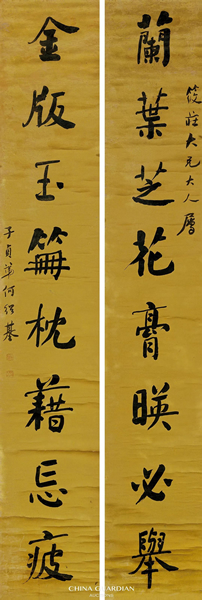 筱莊大兄大人屬
蘭葉芝花膏暎必舉
金版玉篇枕藉忘疲
子貞弟何紹基
CHINA GUARDIAN